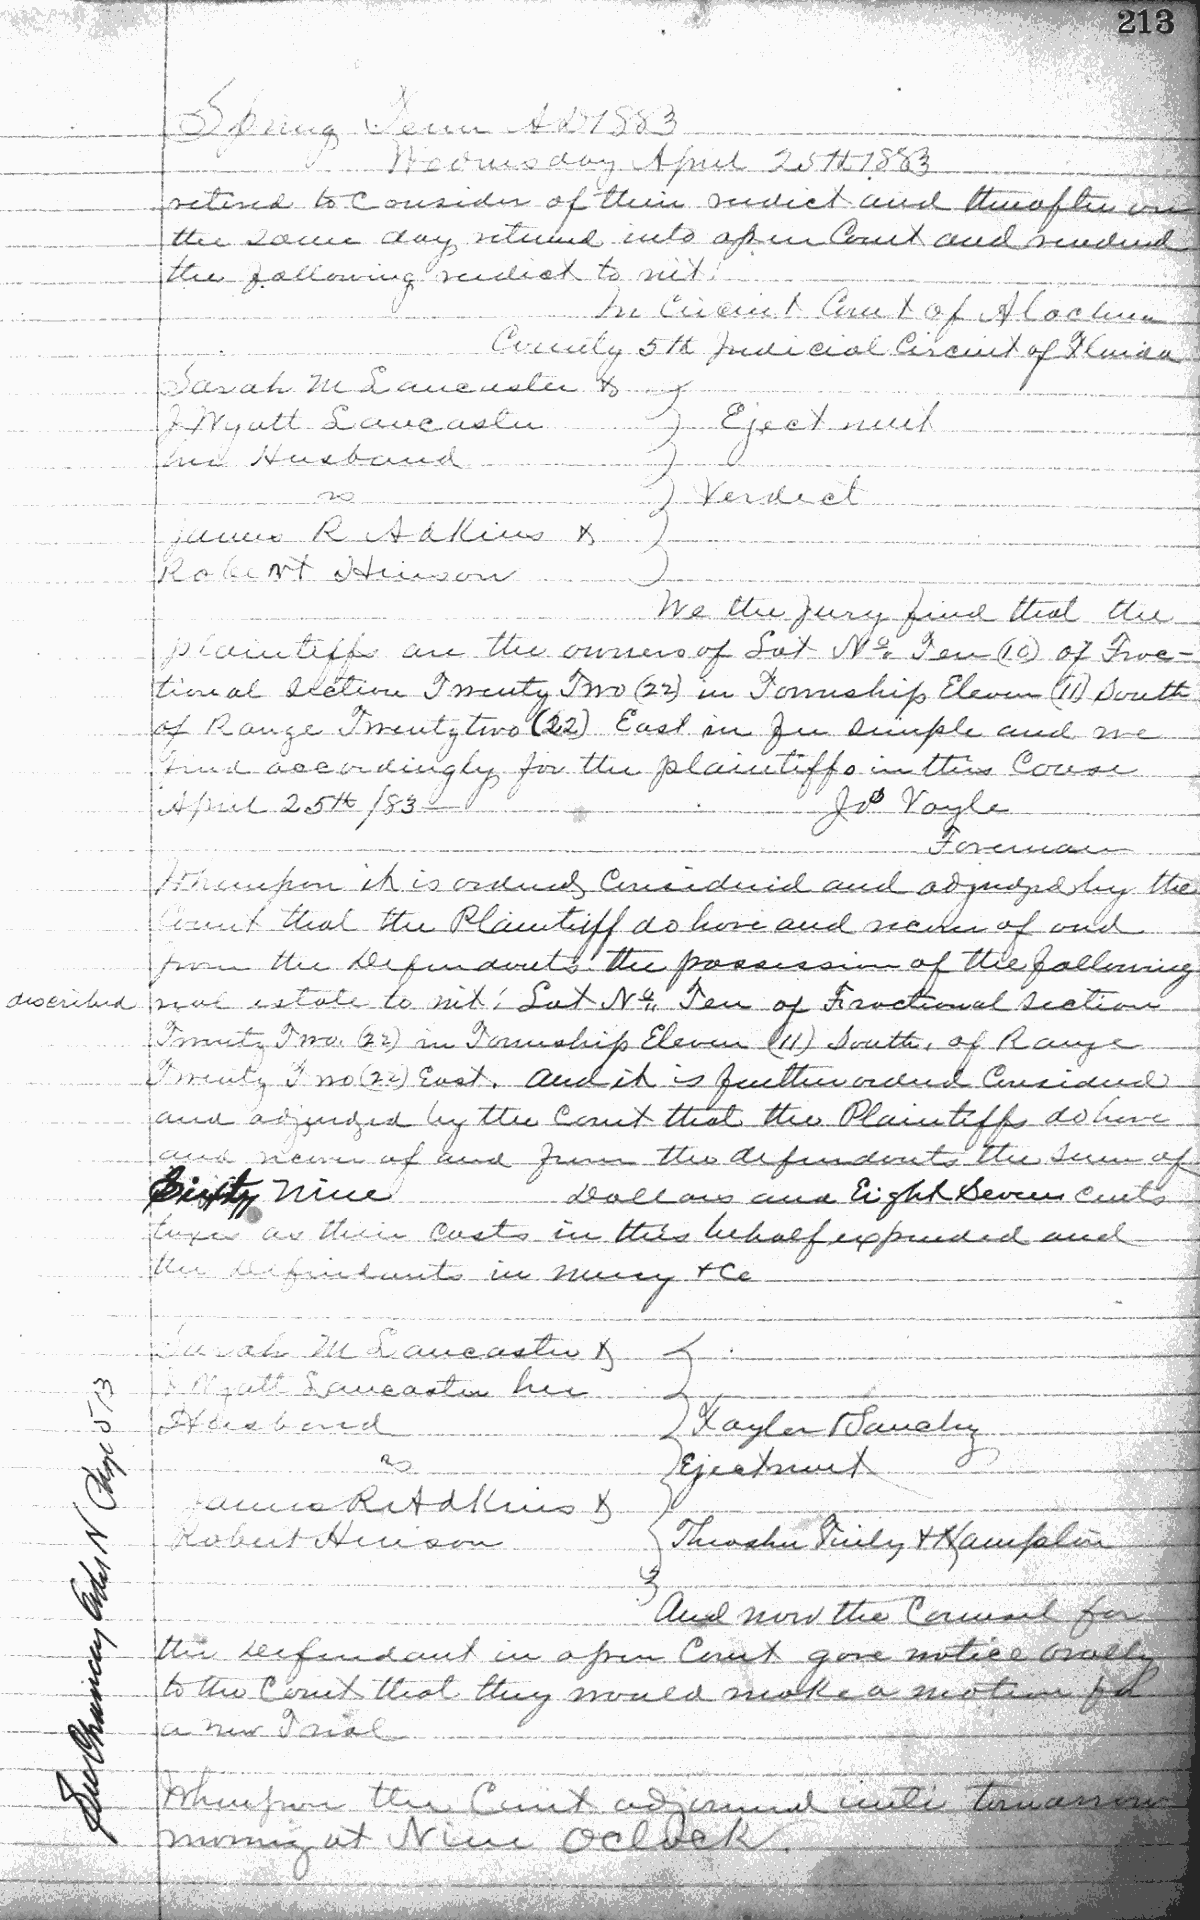 213
Spring Term AD 1883
Wednesday April 25th 1883
retired to Consider of their verdict and thereafter on
the same day returned into open Court and rendered
the following verdict to wit:
In Circuit Court of Alachua
County 5th Judicial Circuit of Florida
Sarah M Lancaster &
J Wyatt Lancaster Ejectment
her Husband
vs Verdict
James R Adkins &
Robert Hinson
We the Jury find that the
plaintiffs are the owners of Lot No. Ten (10) of Frac-
tional Section Twenty Two (22) in Township Eleven (11) South
of Range Twenty two (22) East in fee simple and we
find accordingly for the plaintiffs in this Cause
April 25th /83 Jos Voyle
Foreman
Whereupon it is ordered, Considered and adjudged by the
Court that the Plaintiff do have and recover of and
from the Defendants the possession of the following
described real estate to wit: Lot No. Ten of Fractional Section
Twenty Two (22) in Township Eleven (11) South, of Range
Twenty Two (22) East. And it is further ordered Considered
and adjudged by the Court that the Plaintiffs do have
and recover of and from the defendants the Sum of
Nine Dollars and Eight Seven cents
taxes as their costs in this behalf expended and
the Defendants in mercy &c
Sarah M Lancaster &
J Wyatt Lancaster her
Husband Taylor & Sanchez
vs Ejectment
James R Adkins &
Robert Hinson Thrasher Finley & Hampton
And now the Counsel for
the Defendant in open Court gave notice orally
to the Court that they would make a motion for
a new Trial
Whereupon the Court adjourned until tomorrow
morning at Nine Oclock.
See Chancery Order N Page 513